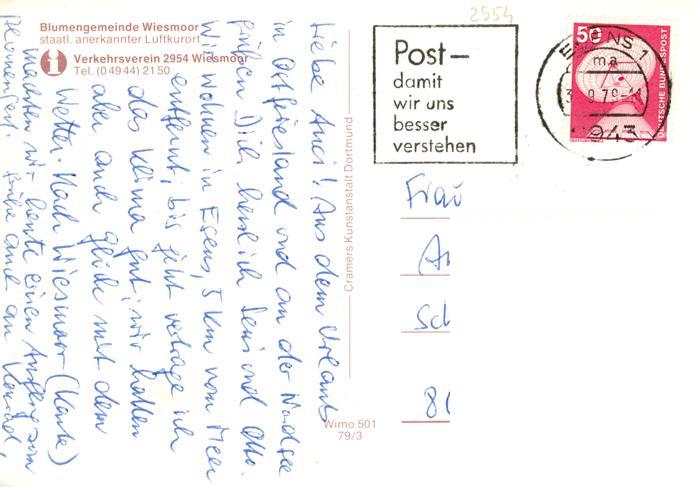 2954
Blumengemeinde Wiesmoor
staatl. anerkannter Luftkurort
i Verkehrsverein 2954 Wiesmoor
Tel. (0 49 44) 21 50
Post –
damit
wir uns
besser
verstehen
ESENS 1
ma
9.79-11
2943
50
DEUTSCHE BUNDESPOST
Liebe Anci! Aus dem Urlaub
in Ostfriesland und an der Nordsee
grüßen Dich herzlich und Otto.
Wir wohnen in Esens, 5 km vom Meer
entfernt; bis jetzt vertrage ich
das Klima gut; wir hatten
aber auch Glück mit dem
Wetter. Nach Wiesmoor (Karte)
machten wir heute einen Ausflug zum
Blumenfest. Grüße auch an Konrad,
Cramers Kunstanstalt Dortmund
Wimo 501
79/3
Frau
A
Sch
8